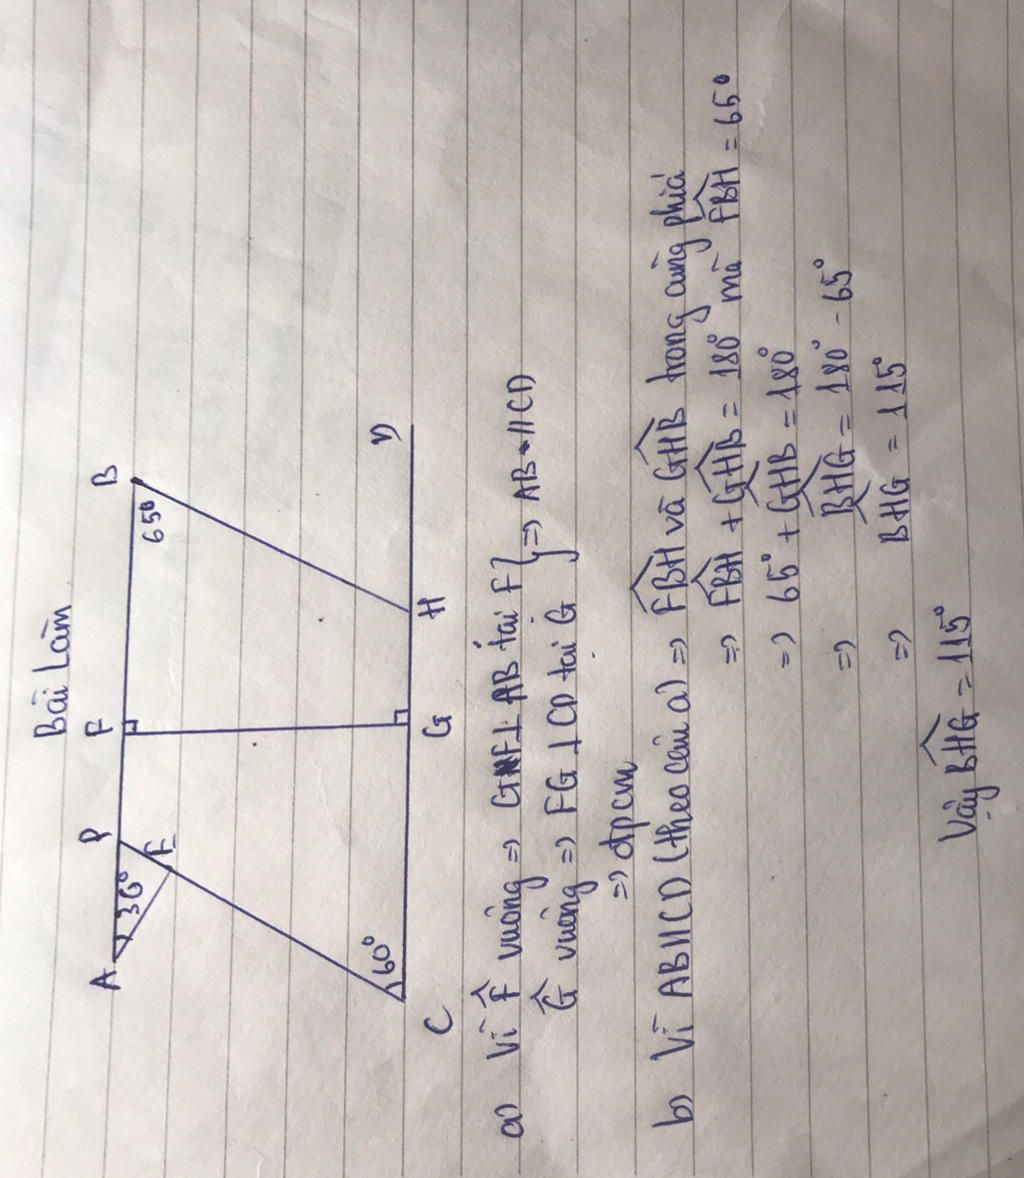 Bài Làm
A P F B
36° E 65°
60°
C G H D
a) Vì F̂ vuông => GF ⊥ AB tại F } => AB // CD
Ĝ vuông => FG ⊥ CD tại G
=> đpcm
b) Vì AB // CD (theo câu a) => FBH và GHB trong cùng phía
=> FBH + GHB = 180° mà FBH = 65°
=> 65° + GHB = 180°
=> BHG = 180° - 65°
=> BHG = 115°
Vậy BHG = 115°